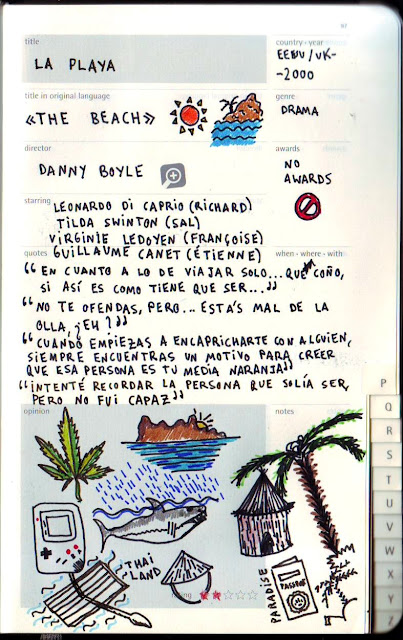 97
title
country • year
LA PLAYA
EEUU/UK-
-2000
title in original language
genre
«THE BEACH»
DRAMA
director
awards
DANNY BOYLE
NO
AWARDS
starring
LEONARDO DI CAPRIO (RICHARD)
TILDA SWINTON (SAL)
VIRGINIE LEDOYEN (FRANÇOISE)
GUILLAUME CANET (ÉTIENNE)
quotes
when • where • with
“EN CUANTO A LO DE VIAJAR SOLO... QUÉ COÑO,
SI ASÍ ES COMO TIENE QUE SER...”
“NO TE OFENDAS, PERO... ESTÁS MAL DE LA
OLLA, ¿EH?”
“CUANDO EMPIEZAS A ENCAPRICHARTE CON ALGUIEN,
SIEMPRE ENCUENTRAS UN MOTIVO PARA CREER
QUE ESA PERSONA ES TU MEDIA NARANJA”
“INTENTÉ RECORDAR LA PERSONA QUE SOLÍA SER,
PERO NO FUI CAPAZ”
opinion
notes
THAI
LAND
PARADISE
PASSPORT
P
Q
R
S
T
U
V
W
X
Y
Z